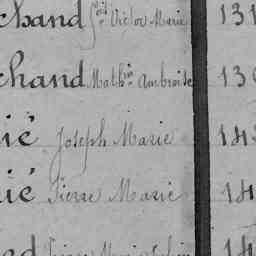 chand Victor Marie 131
chand Math^in Ambroise 13
ié Joseph Marie 14
ié Pierre Marie 14
ed Marie 14